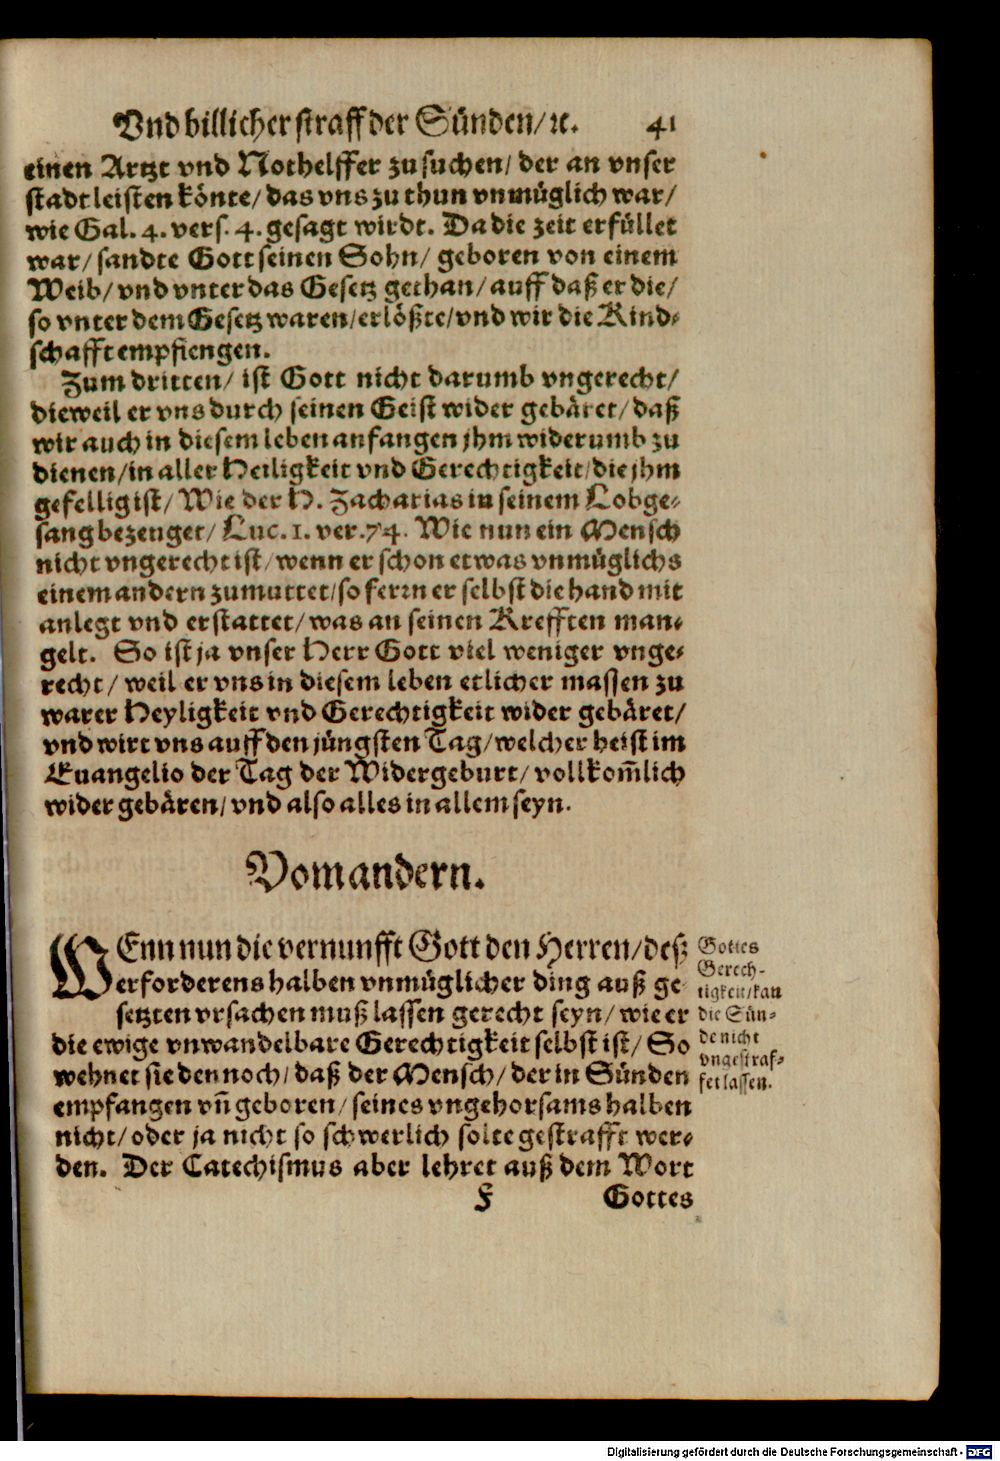 Vnd billicher straff der Sünden/ ꝛc. 41
einen Artzt vnd Nothelffer zu suchen/ der an vnser
stadt leisten könte/ das vns zu thun vnmüglich war/
wie Gal. 4. vers. 4. gesagt wirdt. Da die zeit erfüllet
war/ sandte Gott seinen Sohn/ geboren von einem
Weib/ vnd vnter das Gesetz gethan/ auff daß er die/
so vnter dem Gesetz waren/ erlößte/ vnd wir die Kind-
schafft empfiengen.
Zum dritten/ ist Gott nicht darumb vngerecht/
dieweil er vns durch seinen Geist wider gebäret/ daß
wir auch in diesem leben anfangen jhm widerumb zu
dienen/ in aller Heiligkeit vnd Gerechtigkeit/ die jhm
gefellig ist/ Wie der H. Zacharias in seinem Lobge-
sang bezeuget/ Luc. 1. ver. 74. Wie nun ein Mensch
nicht vngerecht ist/ wenn er schon etwas vnmüglichs
einem andern zumuttet/ so ferrn er selbst die hand mit
anlegt vnd erstattet/ was an seinen Krefften man-
gelt. So ist ja vnser Herr Gott viel weniger vnge-
recht/ weil er vns in diesem leben etlicher massen zu
warer Heyligkeit vnd Gerechtigkeit wider gebäret/
vnd wirt vns auff den jüngsten Tag/ welcher heist im
Euangelio der Tag der Widergeburt/ vollkom̃lich
wider gebären/ vnd also alles in allem seyn.
Vom andern.
WEnn nun die vernunfft Gott den Herren/ deß
erforderens halben vnmüglicher ding auß ge
setzten vrsachen muß lassen gerecht seyn/ wie er
die ewige vnwandelbare Gerechtigkeit selbst ist/ So
wehnet sie dennoch/ daß der Mensch/ der in Sünden
empfangen vñ geboren/ seines vngehorsams halben
nicht/ oder ja nicht so schwerlich solte gestrafft wer-
den. Der Catechismus aber lehret auß dem Wort
F Gottes
Gottes
Gerech-
tigkeit/ kan
die Sün-
de nicht
vngestraf-
fet lassen.
Digitalisierung gefördert durch die Deutsche Forschungsgemeinschaft - DFG